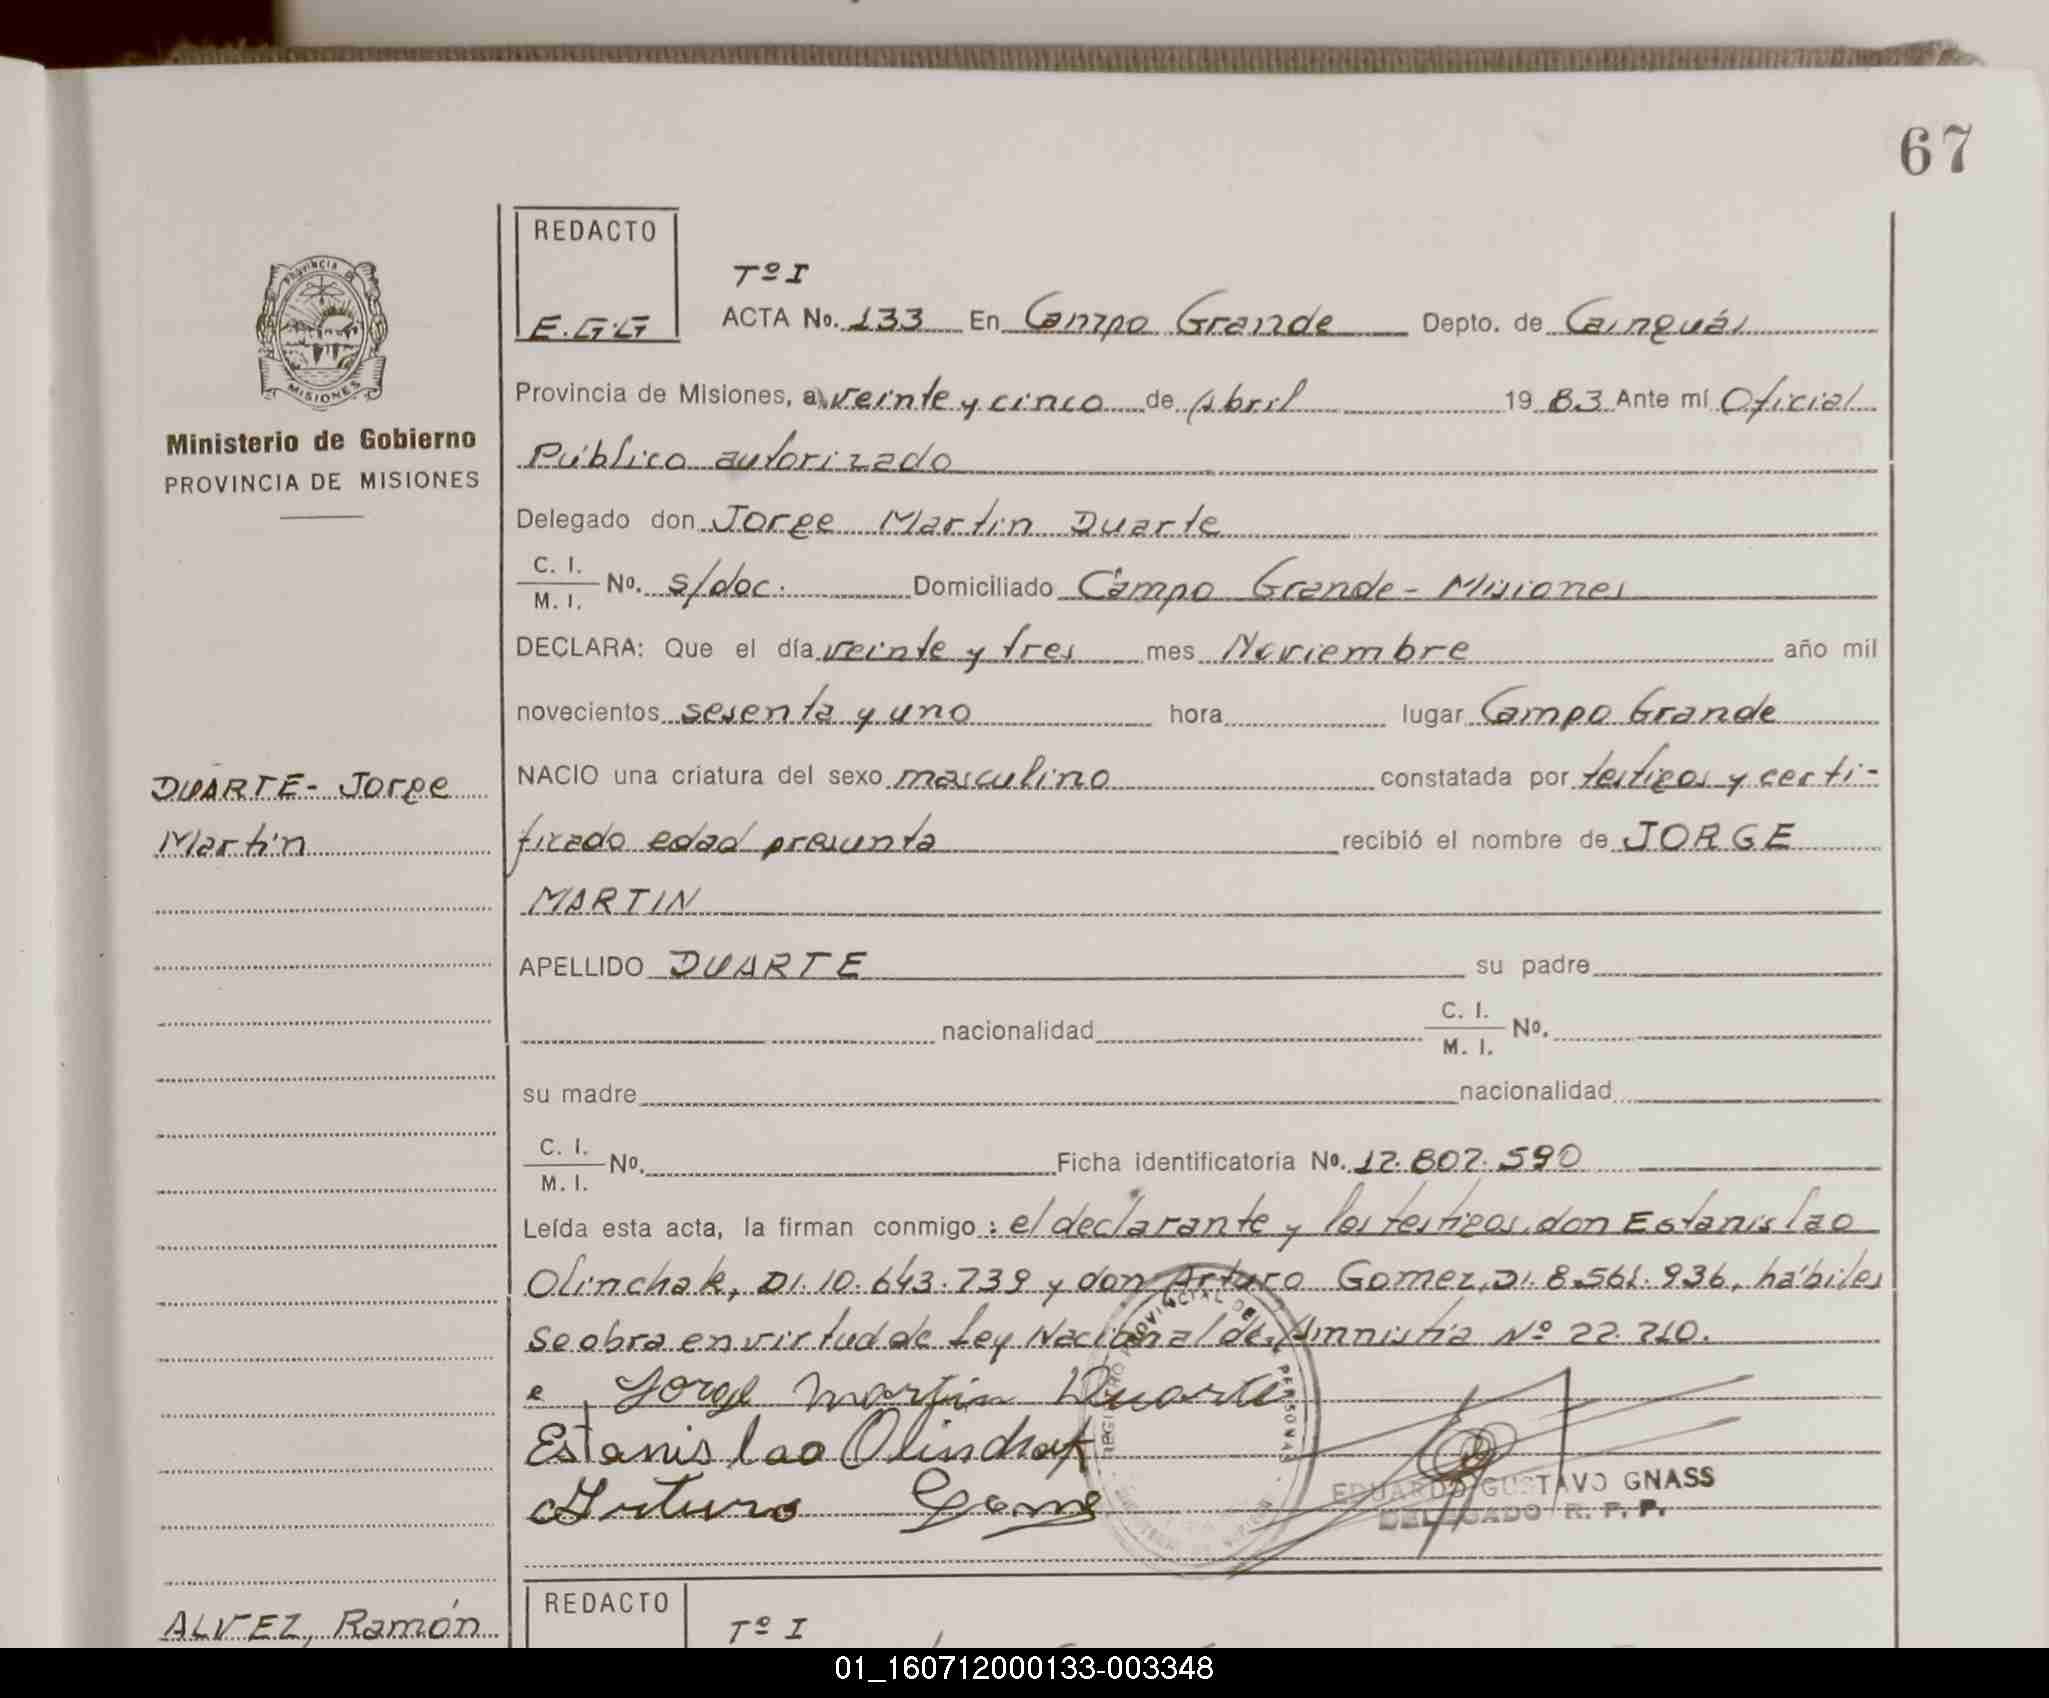 67
REDACTO
E.G.G
Tº I
ACTA No. 133 En Campo Grande Depto. de Cainguás
Provincia de Misiones, a veinte y cinco de Abril 1983 Ante mí Oficial
Ministerio de Gobierno
PROVINCIA DE MISIONES
Público autorizado
Delegado don Jorge Martin Duarte
C. I.
M. I. No. s/doc. Domiciliado Campo Grande - Misiones
DECLARA: Que el día veinte y tres mes Noviembre año mil
novecientos sesenta y uno hora lugar Campo Grande
DUARTE- Jorge
Martín
NACIO una criatura del sexo masculino constatada por testigos y certi-
ficado edad presunta recibió el nombre de JORGE
MARTIN
APELLIDO DUARTE su padre
nacionalidad C. I.
M. I. No.
su madre nacionalidad
C. I.
M. I. No. Ficha identificatoria No. 12.802.590
Leída esta acta, la firman conmigo: el declarante y los testigos, don Estanislao
Olinchak, DI. 10.643.739 y don Arturo Gomez, DI. 8.561.936, hábiles
se obra en virtud de Ley Nacional de Amnistía Nº 22.710.
Jorge Martin Duarte
Estanislao Olinchak
Arturo Gome
REGISTRO PROVINCIAL DE PERSONAS
EDUARDO GUSTAVO GNASS
DELEGADO R. P. P.
REDACTO
ALVEZ, Ramón
Tº I
01_160712000133-003348